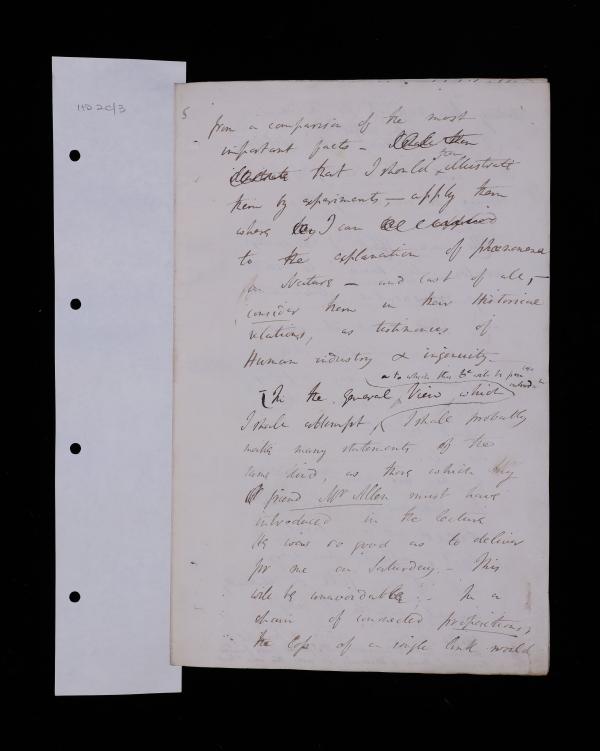 HD 2C/3
5
from a comparison of the most
important facts –
that I should then illustrate
them by experiments, – apply them
where I can
to the explanation of phænomena
in Nature – and last of all, –
consider them in their Historical
relations, as testimonies of
Human industry & ingenuity –
to which this will be
In the general View, which
I shall attempt, I shall probably
make many statements of the
same kind, as those which my
friend Mr Allen must have
introduced in the lecture
He was so good as to deliver
for me on Saturday. – This
will be unavoidable; – In a
chain of connected propositions,
the loss of a single link would